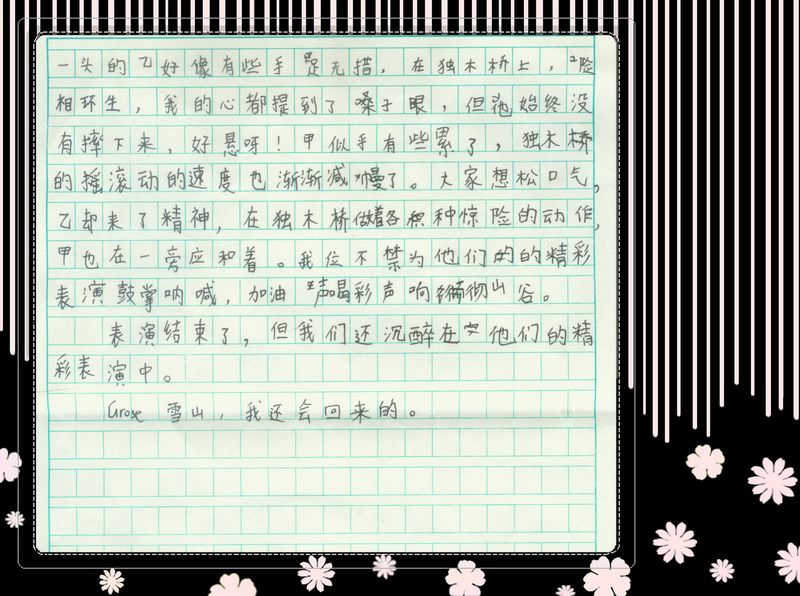 一头的乙好像有些手足无措。在独木桥上，险
相环生，我的心都提到了嗓子眼，但他始终没
有摔下来，好悬呀！甲似乎有些累了，独木桥
的摇滚动的速度也渐渐减慢了。大家想松口气，
乙却来了精神，在独木桥做着各种惊险的动作，
甲也在一旁应和着。我位不禁为他们的的精彩
表演鼓掌呐喊，加油声喝彩声响彻山谷。
表演结束了，但我们还沉醉在他们的精
彩表演中。
雪山，我还会回来的。